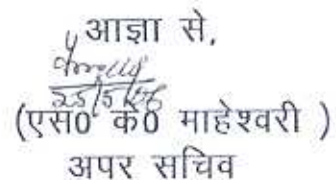 आज्ञा से,
(एस0 के0 माहेश्वरी )
अपर सचिव